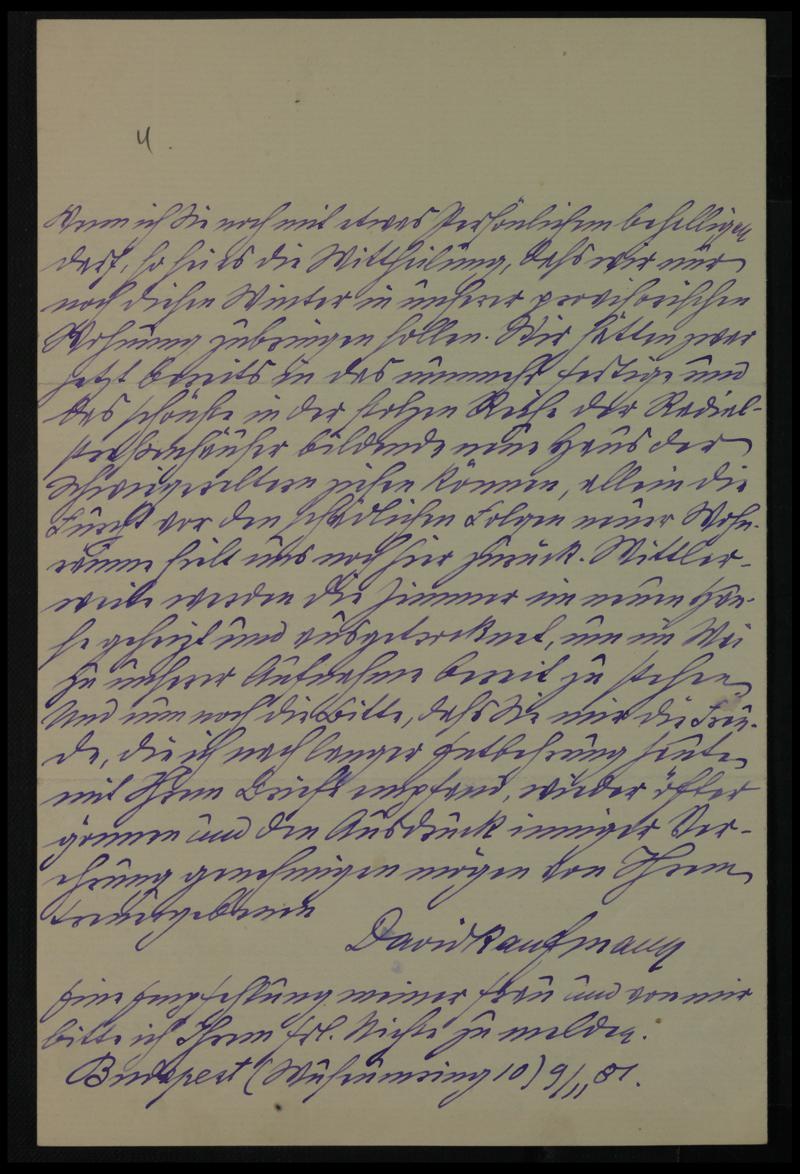 4.
Wenn ich Sie noch mit etwas Persönlichem behelligen
darf, so sei es die Mittheilung, daß wir nur
noch diesen Winter in unserer provisorischen
Wohnung zubringen sollen. Wir hätten zwar
jetzt bereits in das nunmehr fertige und
das schönste in der stolzen Reihe der Radial-
straßenhäuser bildende neue Haus der
Schwiegereltern ziehen können, allein die
Furcht vor den schädlichen Folgen neuer Wohn-
räume hielt uns noch hier zurück. Mittler-
weile werden die Zimmer im neuen Hau-
se geheizt und ausgetrocknet, um im Mai
zu unserer Aufnahme bereit zu stehen.
Und nun noch die Bitte, daß Sie mir die Freu-
de, die ich nach langer Entbehrung heute
mit Ihrem Briefe empfand, wieder öfter
gönnen und den Ausdruck inniger Ver-
ehrung genehmigen mögen von Ihrem
treuergebenen
David Kaufmann
Eine Empfehlung meiner Frau und von mir
bitte ich Ihrem Frl. Nichte zu melden.
Budapest (10) 9/11 81.